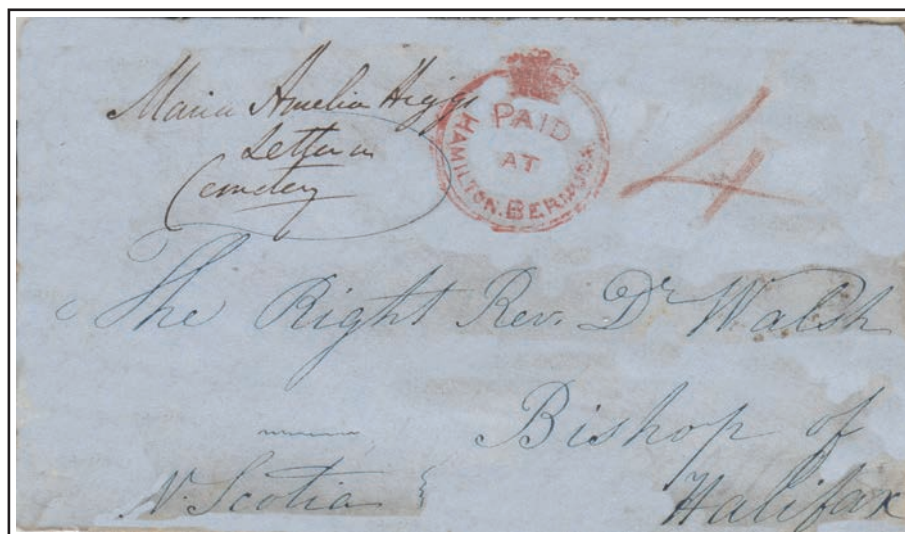 Maria Amelia Higgs
Letter on
Cemetery
PAID
AT
HAMILTON. BERMUDA
4
The Right Rev. Dr Walsh
Bishop of
N. Scotia
Halifax